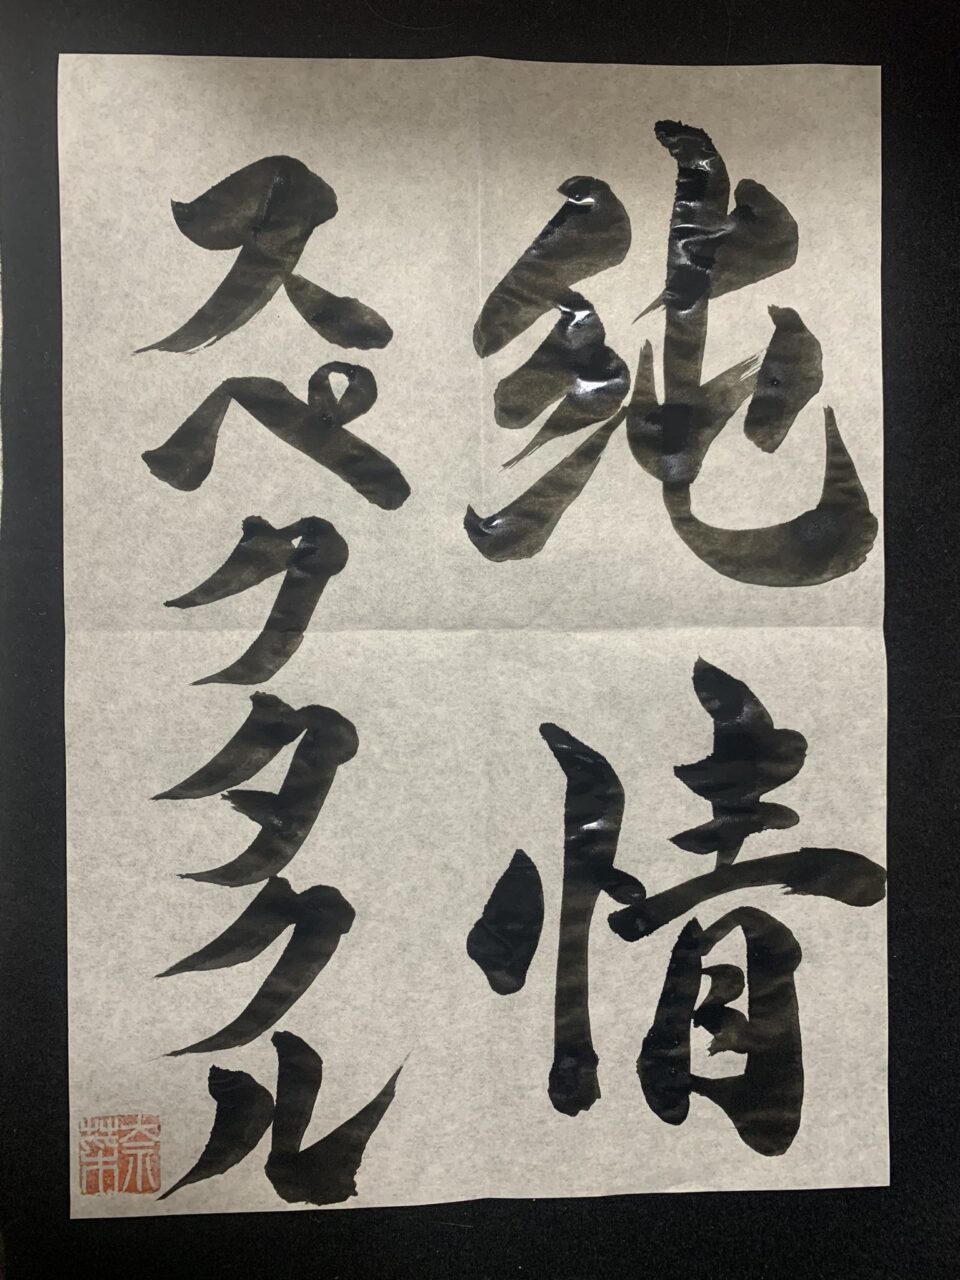 純情
スペクタクル
奈菜